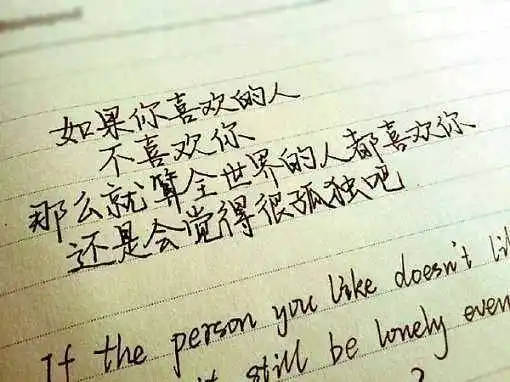 如果你喜欢的人
不喜欢你
那么就算全世界的人都喜欢你
还是会觉得很孤独吧
If the person you like doesn't
still be lonely even
?